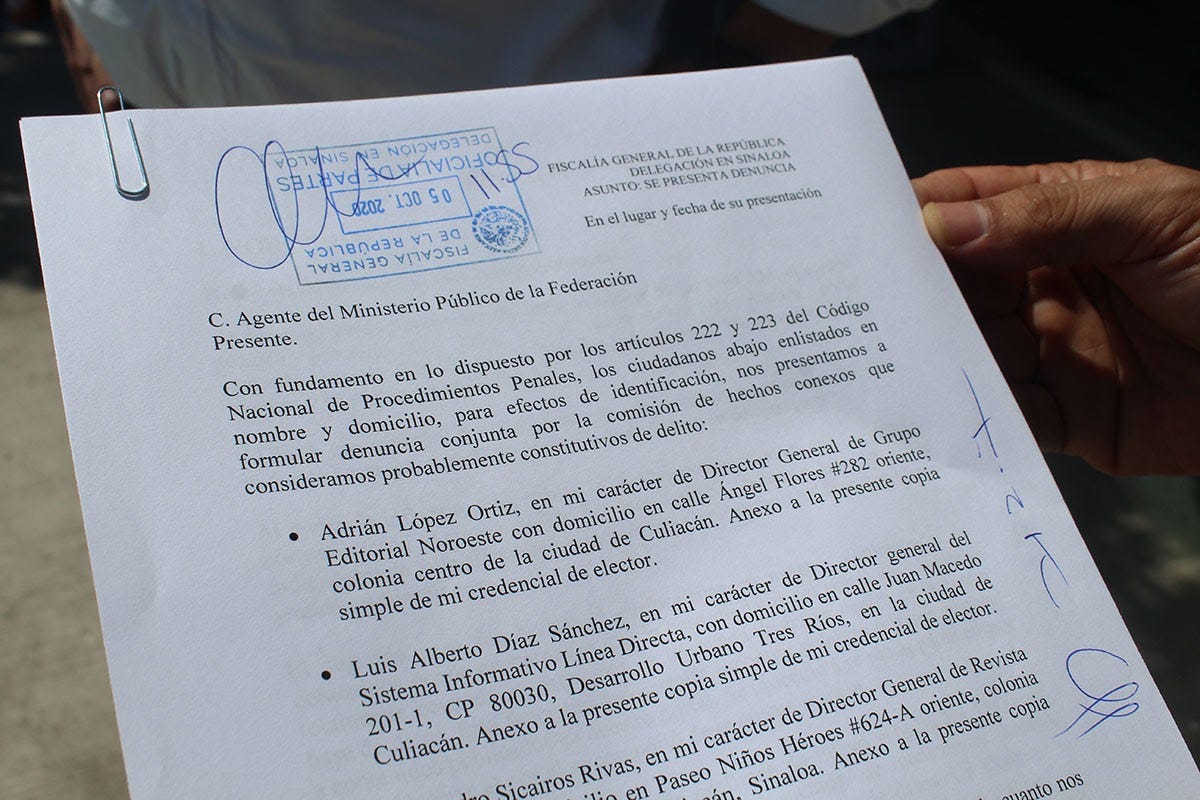 FISCALÍA GENERAL
DE LA REPÚBLICA
05 OCT. 2020
OFICIALIA DE PARTES
DELEGACIÓN EN SINALOA
11:55
FISCALÍA GENERAL DE LA REPÚBLICA
DELEGACIÓN EN SINALOA
ASUNTO: SE PRESENTA DENUNCIA
En el lugar y fecha de su presentación
C. Agente del Ministerio Público de la Federación
Presente.
Con fundamento en lo dispuesto por los artículos 222 y 223 del Código
Nacional de Procedimientos Penales, los ciudadanos abajo enlistados en
nombre y domicilio, para efectos de identificación, nos presentamos a
formular denuncia conjunta por la comisión de hechos conexos que
consideramos probablemente constitutivos de delito:
• Adrián López Ortiz, en mi carácter de Director General de Grupo
Editorial Noroeste con domicilio en calle Ángel Flores #282 oriente,
colonia centro de la ciudad de Culiacán. Anexo a la presente copia
simple de mi credencial de elector.
• Luis Alberto Díaz Sánchez, en mi carácter de Director general del
Sistema Informativo Línea Directa, con domicilio en calle Juan Macedo
201-1, CP 80030, Desarrollo Urbano Tres Ríos, en la ciudad de
Culiacán. Anexo a la presente copia simple de mi credencial de elector.
Sicairos Rivas, en mi carácter de Director General de Revista
en Paseo Niños Héroes #624-A oriente, colonia
Sinaloa. Anexo a la presente copia
cuanto nos